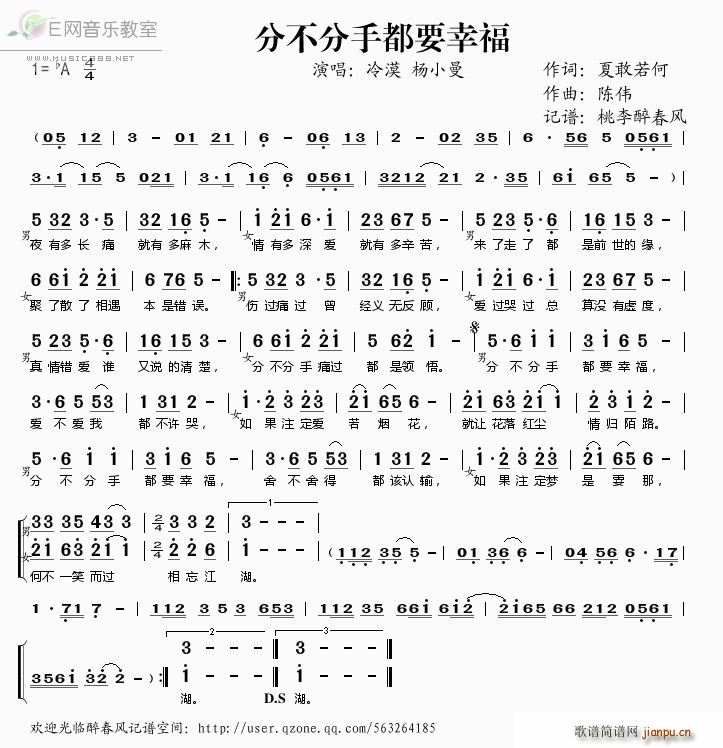 E网音乐教室
www.music888.net
分不分手都要幸福
1=♭A 4/4
演唱：冷漠 杨小曼
作词：夏敢若何
作曲：陈伟
记谱：桃李醉春风
( 05 12 | 3 - 01 21 | 6 - 06 13 | 2 - 02 35 | 6 · 56 5 0561 |
3·1 15 5 021 | 3·1 16 6 0561 | 3212 21 2 · 35 | 61 65 5 - ) |
5 32 3·5 | 32 16 5 - | 1 21 6·1 | 23 67 5 - | 5 23 5·6 | 16 15 3 - |
男 夜有多长痛 就有多麻木， 女 情有多深爱 就有多辛苦， 男 来了走了都 是前世的缘，
6 61 2 221 | 6 76 5 - |: 5 32 3·5 | 32 16 5 - | 1 21 6·1 | 23 67 5 - |
女 聚了散了相遇 本是错误。 男 伤过痛过曾 经义无反顾， 女 爱过哭过总 算没有虚度，
5 23 5·6 | 16 15 3 - | 6 61 2 21 | 5 62 1 - | 5·6 1 1 | 3161 5 - |
男 真情错爱谁 又说的清楚， 女 分不分手痛过 都是领悟。 男 分不分手 都要幸福，
3·6 5 53 | 1 31 2 - | 1·2 3 23 | 21 65 6 - | 1 21 6 53 | 2 31 2 - |
爱不爱我 都不许哭， 女 如果注定爱 苦烟花， 就让花落红尘 情归陌路。
5·6 1 1 | 3161 5 - | 3·6 5 3 | 231 2 - | 1·2 3 23 | 21 65 6 - |
男 分不分手 都要幸福， 舍不舍得 都该认输， 女 如果注定梦 是要那，
男 33 35 43 3 | 2/4 3 3 2 | 1 3 - - - |
女 21 63 21 1 | 2/4 2 2 6 | 1 - - - | ( 112 35 5 - | 01 36 6 - | 04 56 6 · 17 |
何不一笑而过 相忘江 湖。
1 · 71 7 - | 112 3 53 653 | 113 35 661 612 | 2165 56 212 0561 |
2 3 - - - | 3 3 - - - |
3561 32 2 - ) :| 1 - - - | 1 - - - |
湖。 D.S 湖。
欢迎光临醉春风记谱空间：http://user.qzone.qq.com/563264185
歌谱简谱网
jianpu.cn